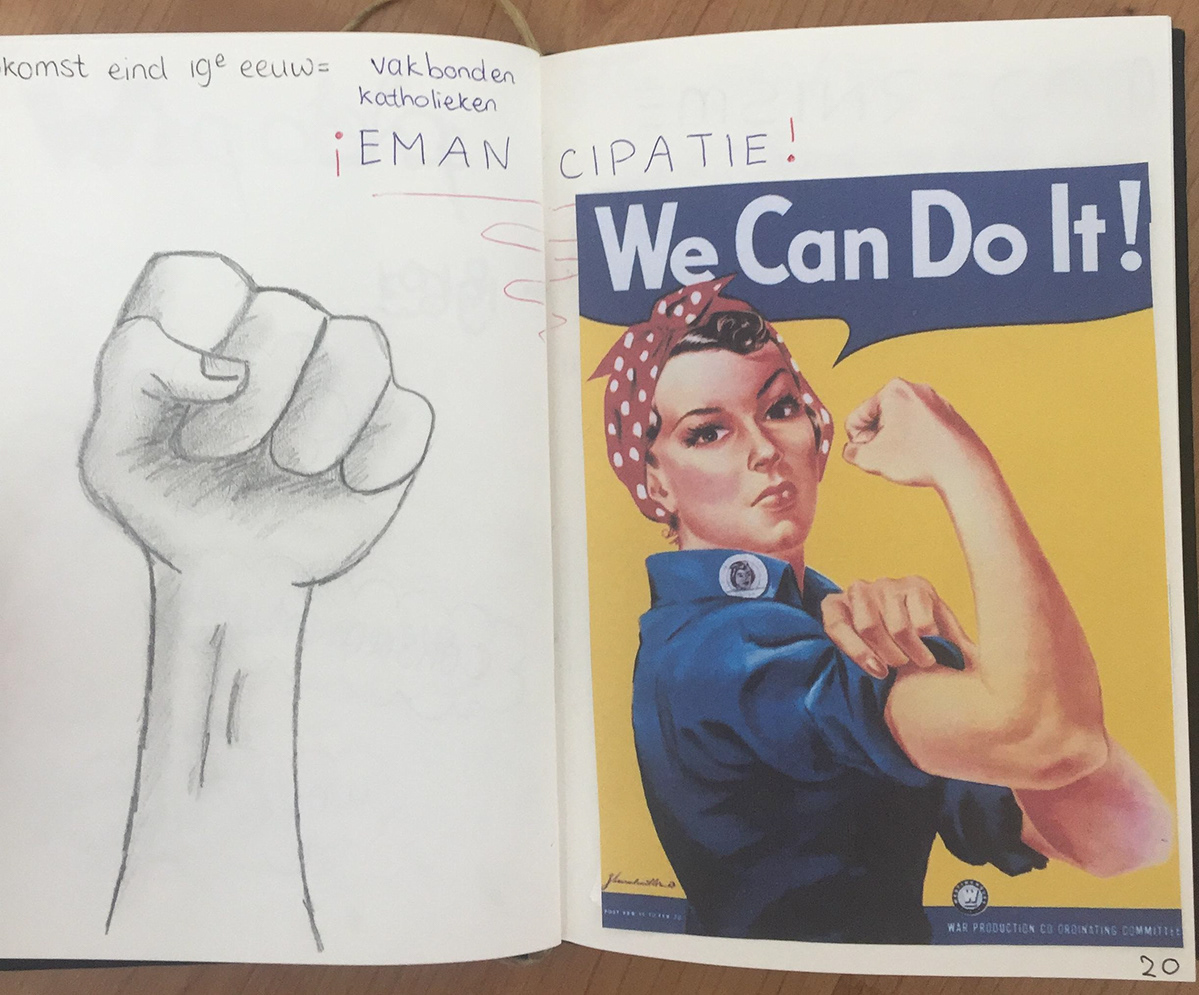 komst eind 19e eeuw= vakbonden
katholieken
¡EMANCIPATIE!
We Can Do It!
WAR PRODUCTION CO-ORDINATING COMMITTEE
20